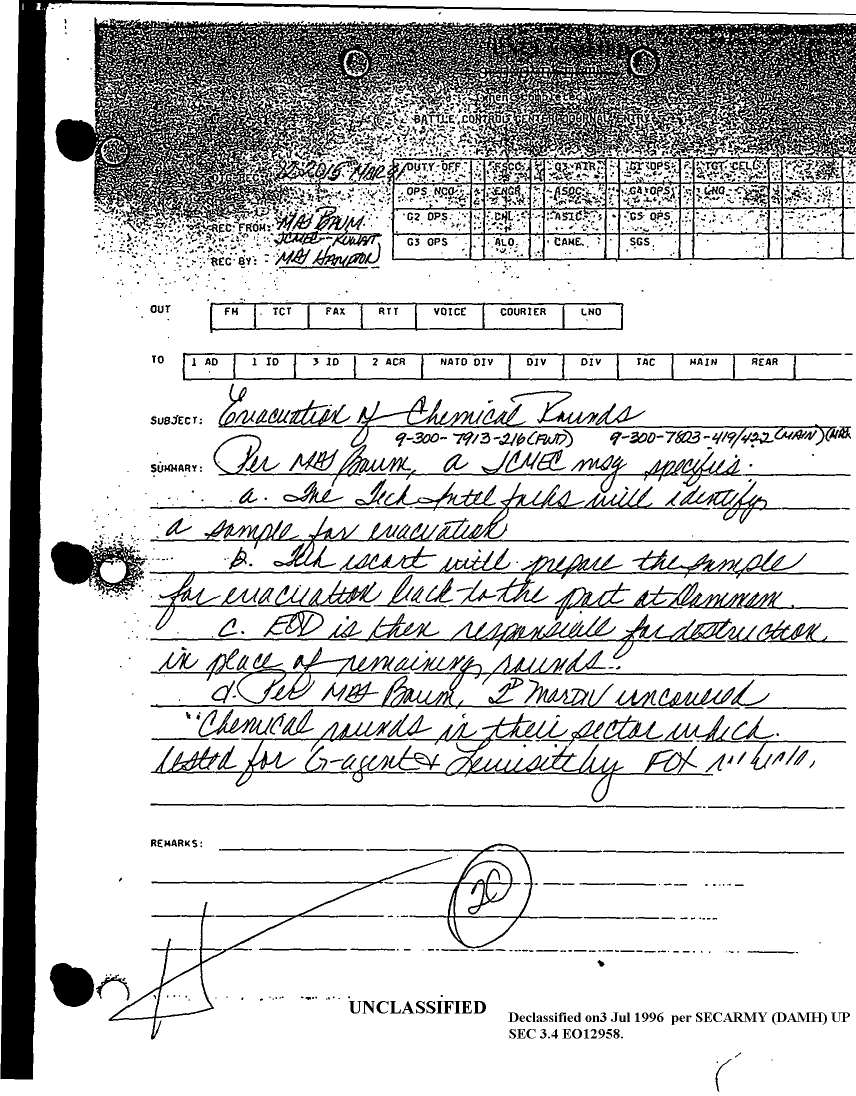 UNCLASSIFIED
BATTLE CONTROL CENTER JOURNAL ENTRY
222015 MAR 91
DUTY OFF FSCC G3 AIR G1 OPS TGT CELL
OPS NCO ENGR ASOC G4 OPS LNO
REC FROM: MAJ BAUM G2 OPS CML ASIC G5 OPS
JCMEC-KUWAIT
REC BY: MAJ HAMPTON G3 OPS ALO CAME SGS
OUT FM TCT FAX RTT VOICE COURIER LNO
TO 1 AD 1 ID 3 ID 2 ACR NATO DIV DIV DIV TAC MAIN REAR
SUBJECT: Evacuation of Chemical Rounds
9-300-7913-216 (FWD) 9-300-7823-419/422 (MAIN)
SUMMARY: Per MAJ Baum, a JCMEC msg specifies:
a. The Tech Intel folks will identify
a sample for evacuation
B. Tech escort will prepare the sample
for evacuation back to the port at Dammam.
c. EOD is then responsible for destruction
in place of remaining rounds.
d. Per MAJ Baum, 2D MARDIV uncovered
"Chemical rounds in their sector which
tested for G-agent & Lewisite by FOX
REMARKS:
2C
UNCLASSIFIED
Declassified on3 Jul 1996 per SECARMY (DAMH) UP
SEC 3.4 EO12958.